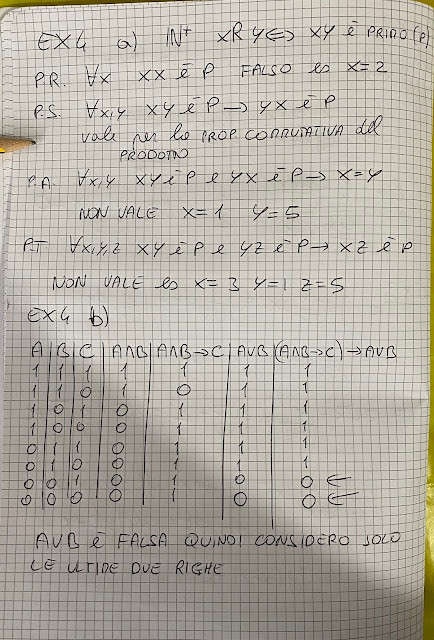 EX4 a) IN⁺ xRy⇔ xy è PRIMO (P)
P.R. ∀x xx è P FALSO es x=2
P.S. ∀x,y xy è P → yx è P
vale per la PROP COMMUTATIVA del
PRODOTTO
P.A. ∀x,y xy è P e yx è P → x=y
NON VALE x=1 y=5
P.T ∀x,y,z xy è P e yz è P → xz è P
NON VALE es x=3 y=1 z=5
EX4 b)
A | B | C | A∧B | A∧B→C | A∨B | (A∧B→C)→A∨B
1 1 1 1 1 1 1
1 1 0 1 0 1 1
1 0 1 0 1 1 1
1 0 0 0 1 1 1
0 1 1 0 1 1 1
0 1 0 0 1 1 1
0 0 1 0 1 0 0 ←
0 0 0 0 1 0 0 ←
A∨B è FALSA QUINDI CONSIDERO SOLO
LE ULTIME DUE RIGHE